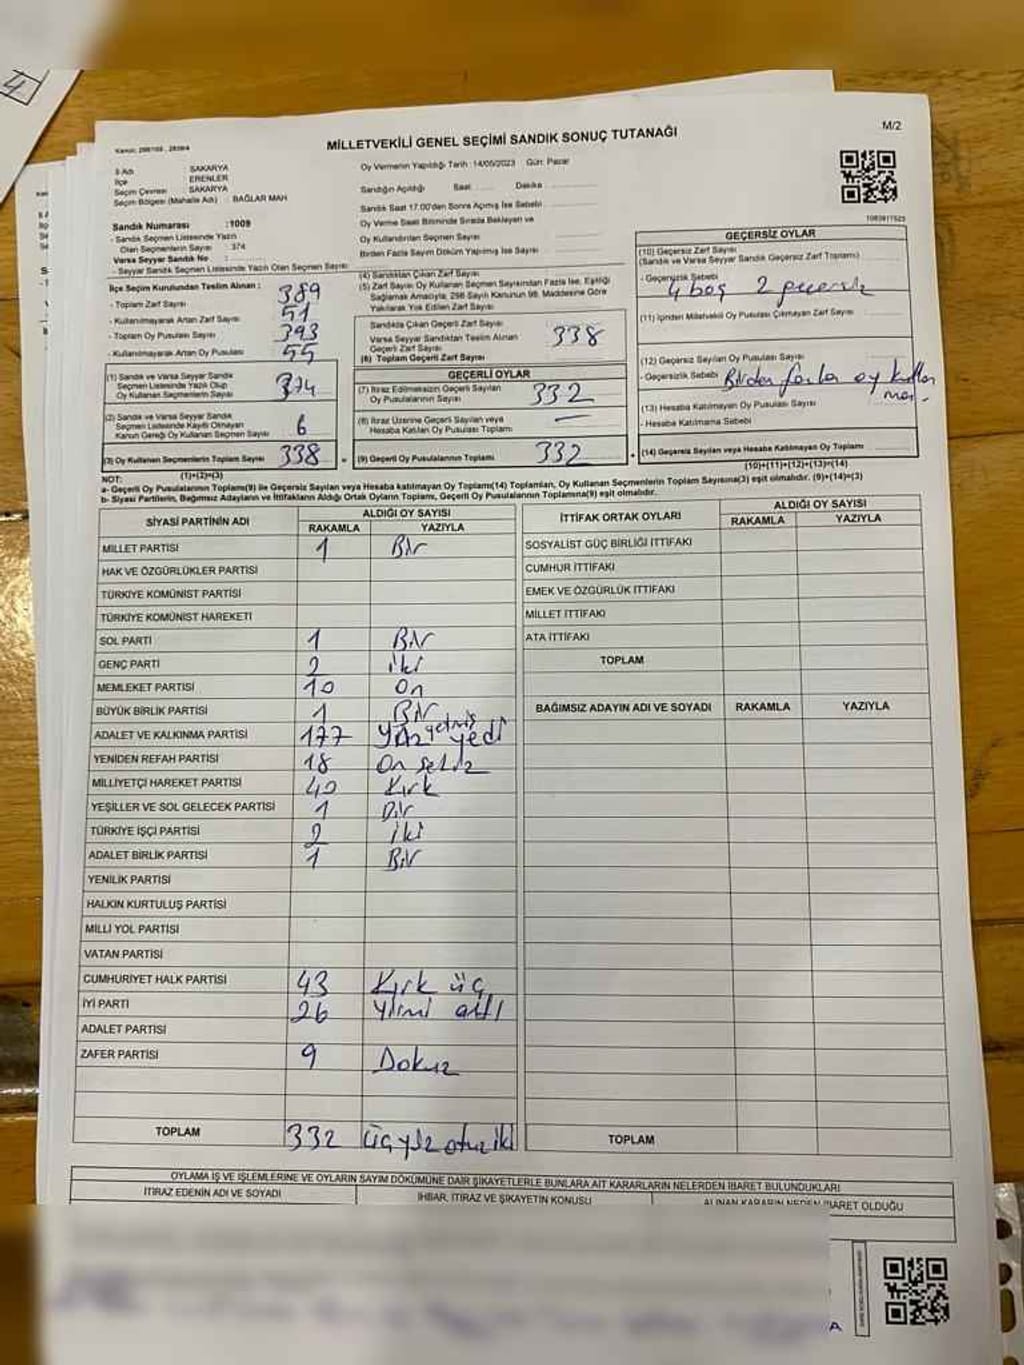 4
Kanun: 298/105 , 2839/4
MİLLETVEKİLİ GENEL SEÇİMİ SANDIK SONUÇ TUTANAĞI
M/2
İl Adı : SAKARYA
İlçe : ERENLER
Seçim Çevresi : SAKARYA
Seçim Bölgesi (Mahalle Adı) : BAĞLAR MAH
Sandık Numarası : 1009
- Sandık Seçmen Listesinde Yazılı
Olan Seçmenlerin Sayısı : 374
Varsa Seyyar Sandık No :
- Seyyar Sandık Seçmen Listesinde Yazılı Olan Seçmen Sayısı :
İlçe Seçim Kurulundan Teslim Alınan :
- Toplam Zarf Sayısı 389
- Kullanılmayarak Artan Zarf Sayısı 51
- Toplam Oy Pusulası Sayısı 393
- Kullanılmayarak Artan Oy Pusulası 55
(1) Sandık ve Varsa Seyyar Sandık
Seçmen Listesinde Yazılı Olup
Oy Kullanan Seçmenlerin Sayısı
(2) Sandık ve Varsa Seyyar Sandık
Seçmen Listesinde Kayıtlı Olmayan
Kanun Gereği Oy Kullanan Seçmen Sayısı 6
(3) Oy Kullanan Seçmenlerin Toplam Sayısı 338
(1)+(2)=(3)
Oy Vermenin Yapıldığı Tarih : 14/05/2023 Gün: Pazar
Sandığın Açıldığı Saat: Dakika :
Sandık Saat 17.00'den Sonra Açılmış İse Sebebi
Oy Verme Saati Bitiminde Sırada Bekleyen ve
Oy Kullandırılan Seçmen Sayısı
Birden Fazla Sayım Döküm Yapılmış İse Sayısı
(4) Sandıktan Çıkan Zarf Sayısı
(5) Zarf Sayısı Oy Kullanan Seçmen Sayısından Fazla İse, Eşitliği
Sağlamak Amacıyla, 298 Sayılı Kanunun 98. Maddesine Göre
Yakılarak Yok Edilen Zarf Sayısı
Sandıkta Çıkan Geçerli Zarf Sayısı
Varsa Seyyar Sandıktan Teslim Alınan
Geçerli Zarf Sayısı
(6) Toplam Geçerli Zarf Sayısı 338
GEÇERLİ OYLAR
(7) İtiraz Edilmeksizin Geçerli Sayılan
Oy Pusulalarının Sayısı 332
(8) İtiraz Üzerine Geçerli Sayılan veya
Hesaba Katılan Oy Pusulası Toplamı —
= (9) Geçerli Oy Pusulalarının Toplamı 332
GEÇERSİZ OYLAR
(10) Geçersiz Zarf Sayısı
(Sandık ve Varsa Seyyar Sandık Geçersiz Zarf Toplamı)
- Geçersizlik Sebebi
4 boş 2
(11) İçinden Milletvekili Oy Pusulası Çıkmayan Zarf Sayısı
(12) Geçersiz Sayılan Oy Pusulası Sayısı
- Geçersizlik Sebebi Birden fazla oy
(13) Hesaba Katılmayan Oy Pusulası Sayısı
- Hesaba Katılmama Sebebi
+ (14) Geçersiz Sayılan veya Hesaba Katılmayan Oy Toplamı
(10)+(11)+(12)+(13)=(14)
NOT:
a- Geçerli Oy Pusulalarının Toplamı(9) ile Geçersiz Sayılan veya Hesaba katılmayan Oy Toplamı(14) Toplamları, Oy Kullanan Seçmenlerin Toplam Sayısına(3) eşit olmalıdır. (9)+(14)=(3)
b- Siyasi Partilerin, Bağımsız Adayların ve İttifakların Aldığı Ortak Oyların Toplamı, Geçerli Oy Pusulalarının Toplamına(9) eşit olmalıdır.
SİYASİ PARTİNİN ADI ALDIĞI OY SAYISI
RAKAMLA YAZIYLA
MİLLET PARTİSİ 1 Bir
HAK VE ÖZGÜRLÜKLER PARTİSİ
TÜRKİYE KOMÜNİST PARTİSİ
TÜRKİYE KOMÜNİST HAREKETİ
SOL PARTİ 1 Bir
GENÇ PARTİ 2 iki
MEMLEKET PARTİSİ 10 On
BÜYÜK BİRLİK PARTİSİ 1 Bir
ADALET VE KALKINMA PARTİSİ 177 Yüz yetmiş yedi
YENİDEN REFAH PARTİSİ 18 On sekiz
MİLLİYETÇİ HAREKET PARTİSİ 40 Kırk
YEŞİLLER VE SOL GELECEK PARTİSİ 1 Bir
TÜRKİYE İŞÇİ PARTİSİ 2 iki
ADALET BİRLİK PARTİSİ 1 Bir
YENİLİK PARTİSİ
HALKIN KURTULUŞ PARTİSİ
MİLLİ YOL PARTİSİ
VATAN PARTİSİ
CUMHURİYET HALK PARTİSİ 43 Kırk üç
İYİ PARTİ 26 Yirmi altı
ADALET PARTİSİ
ZAFER PARTİSİ 9 Dokuz
TOPLAM 332 üçyüz otuz iki
İTTİFAK ORTAK OYLARI ALDIĞI OY SAYISI
RAKAMLA YAZIYLA
SOSYALİST GÜÇ BİRLİĞİ İTTİFAKI
CUMHUR İTTİFAKI
EMEK VE ÖZGÜRLÜK İTTİFAKI
MİLLET İTTİFAKI
ATA İTTİFAKI
TOPLAM
BAĞIMSIZ ADAYIN ADI VE SOYADI RAKAMLA YAZIYLA
TOPLAM
OYLAMA İŞ VE İŞLEMLERİNE VE OYLARIN SAYIM DÖKÜMÜNE DAİR ŞİKAYETLERLE BUNLARA AİT KARARLARIN NELERDEN İBARET BULUNDUKLARI
İTİRAZ EDENİN ADI VE SOYADI İHBAR, İTİRAZ VE ŞİKAYETİN KONUSU ALINAN KARARIN NEDEN İBARET OLDUĞU